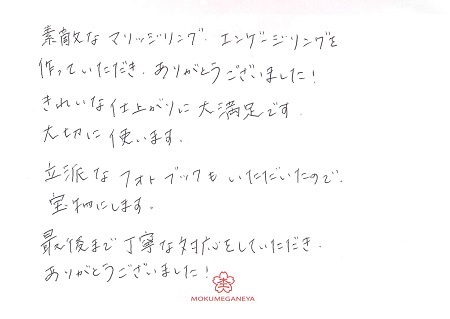 素敵なマリッジリング、エンゲージリングを
作っていただき、ありがとうございました！
きれいな仕上がりに大満足です。
大切に使います。
立派なフォトブックもいただいたので、
宝物にします。
最後まで丁寧な対応をしていただき、
ありがとうございました！
MOKUMEGANEYA